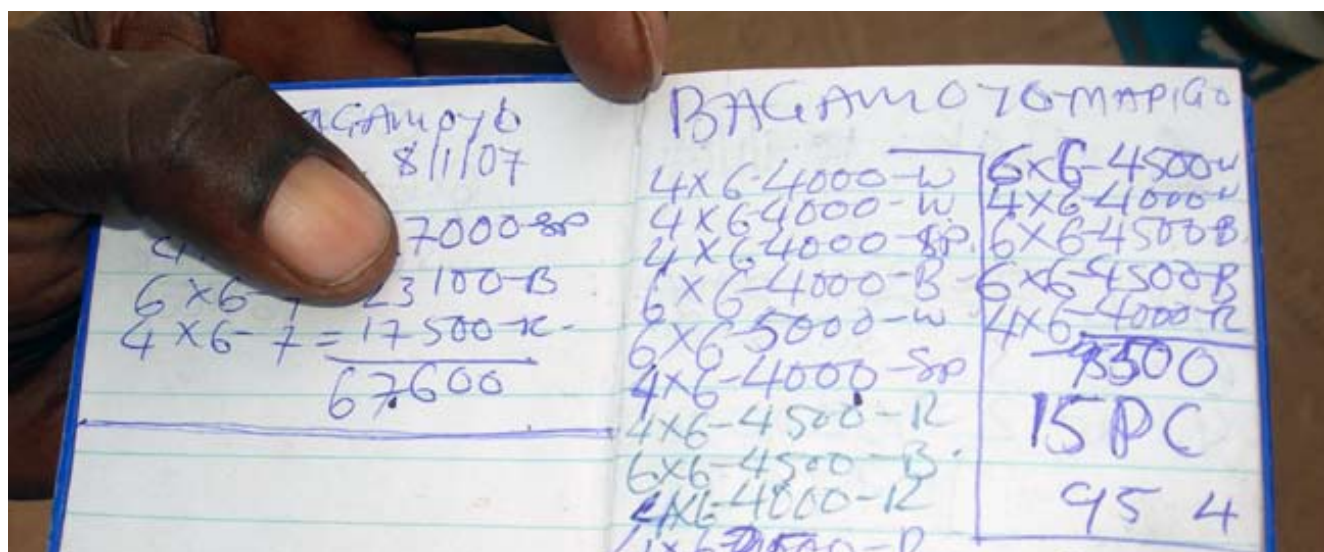 BAGAMOYO
8/1/07
7000-SP
6x6-7 23100-B
4x6-7=17500-R-
67.600
BAGAMOYO-MAPIGO
4x6-4000-W
4x6-4000-W
4x6-4000-SP.
6x6-4000-B
6x6-5000-W
4x6-4000-SP
4x6-4500-R
6x6-4500-B.
4x6-4000-R
6x6-4500-W
4x6-4000-W
6x6-4500B.
6x6-4500-B
4x6-4000-R
15PC
95 4